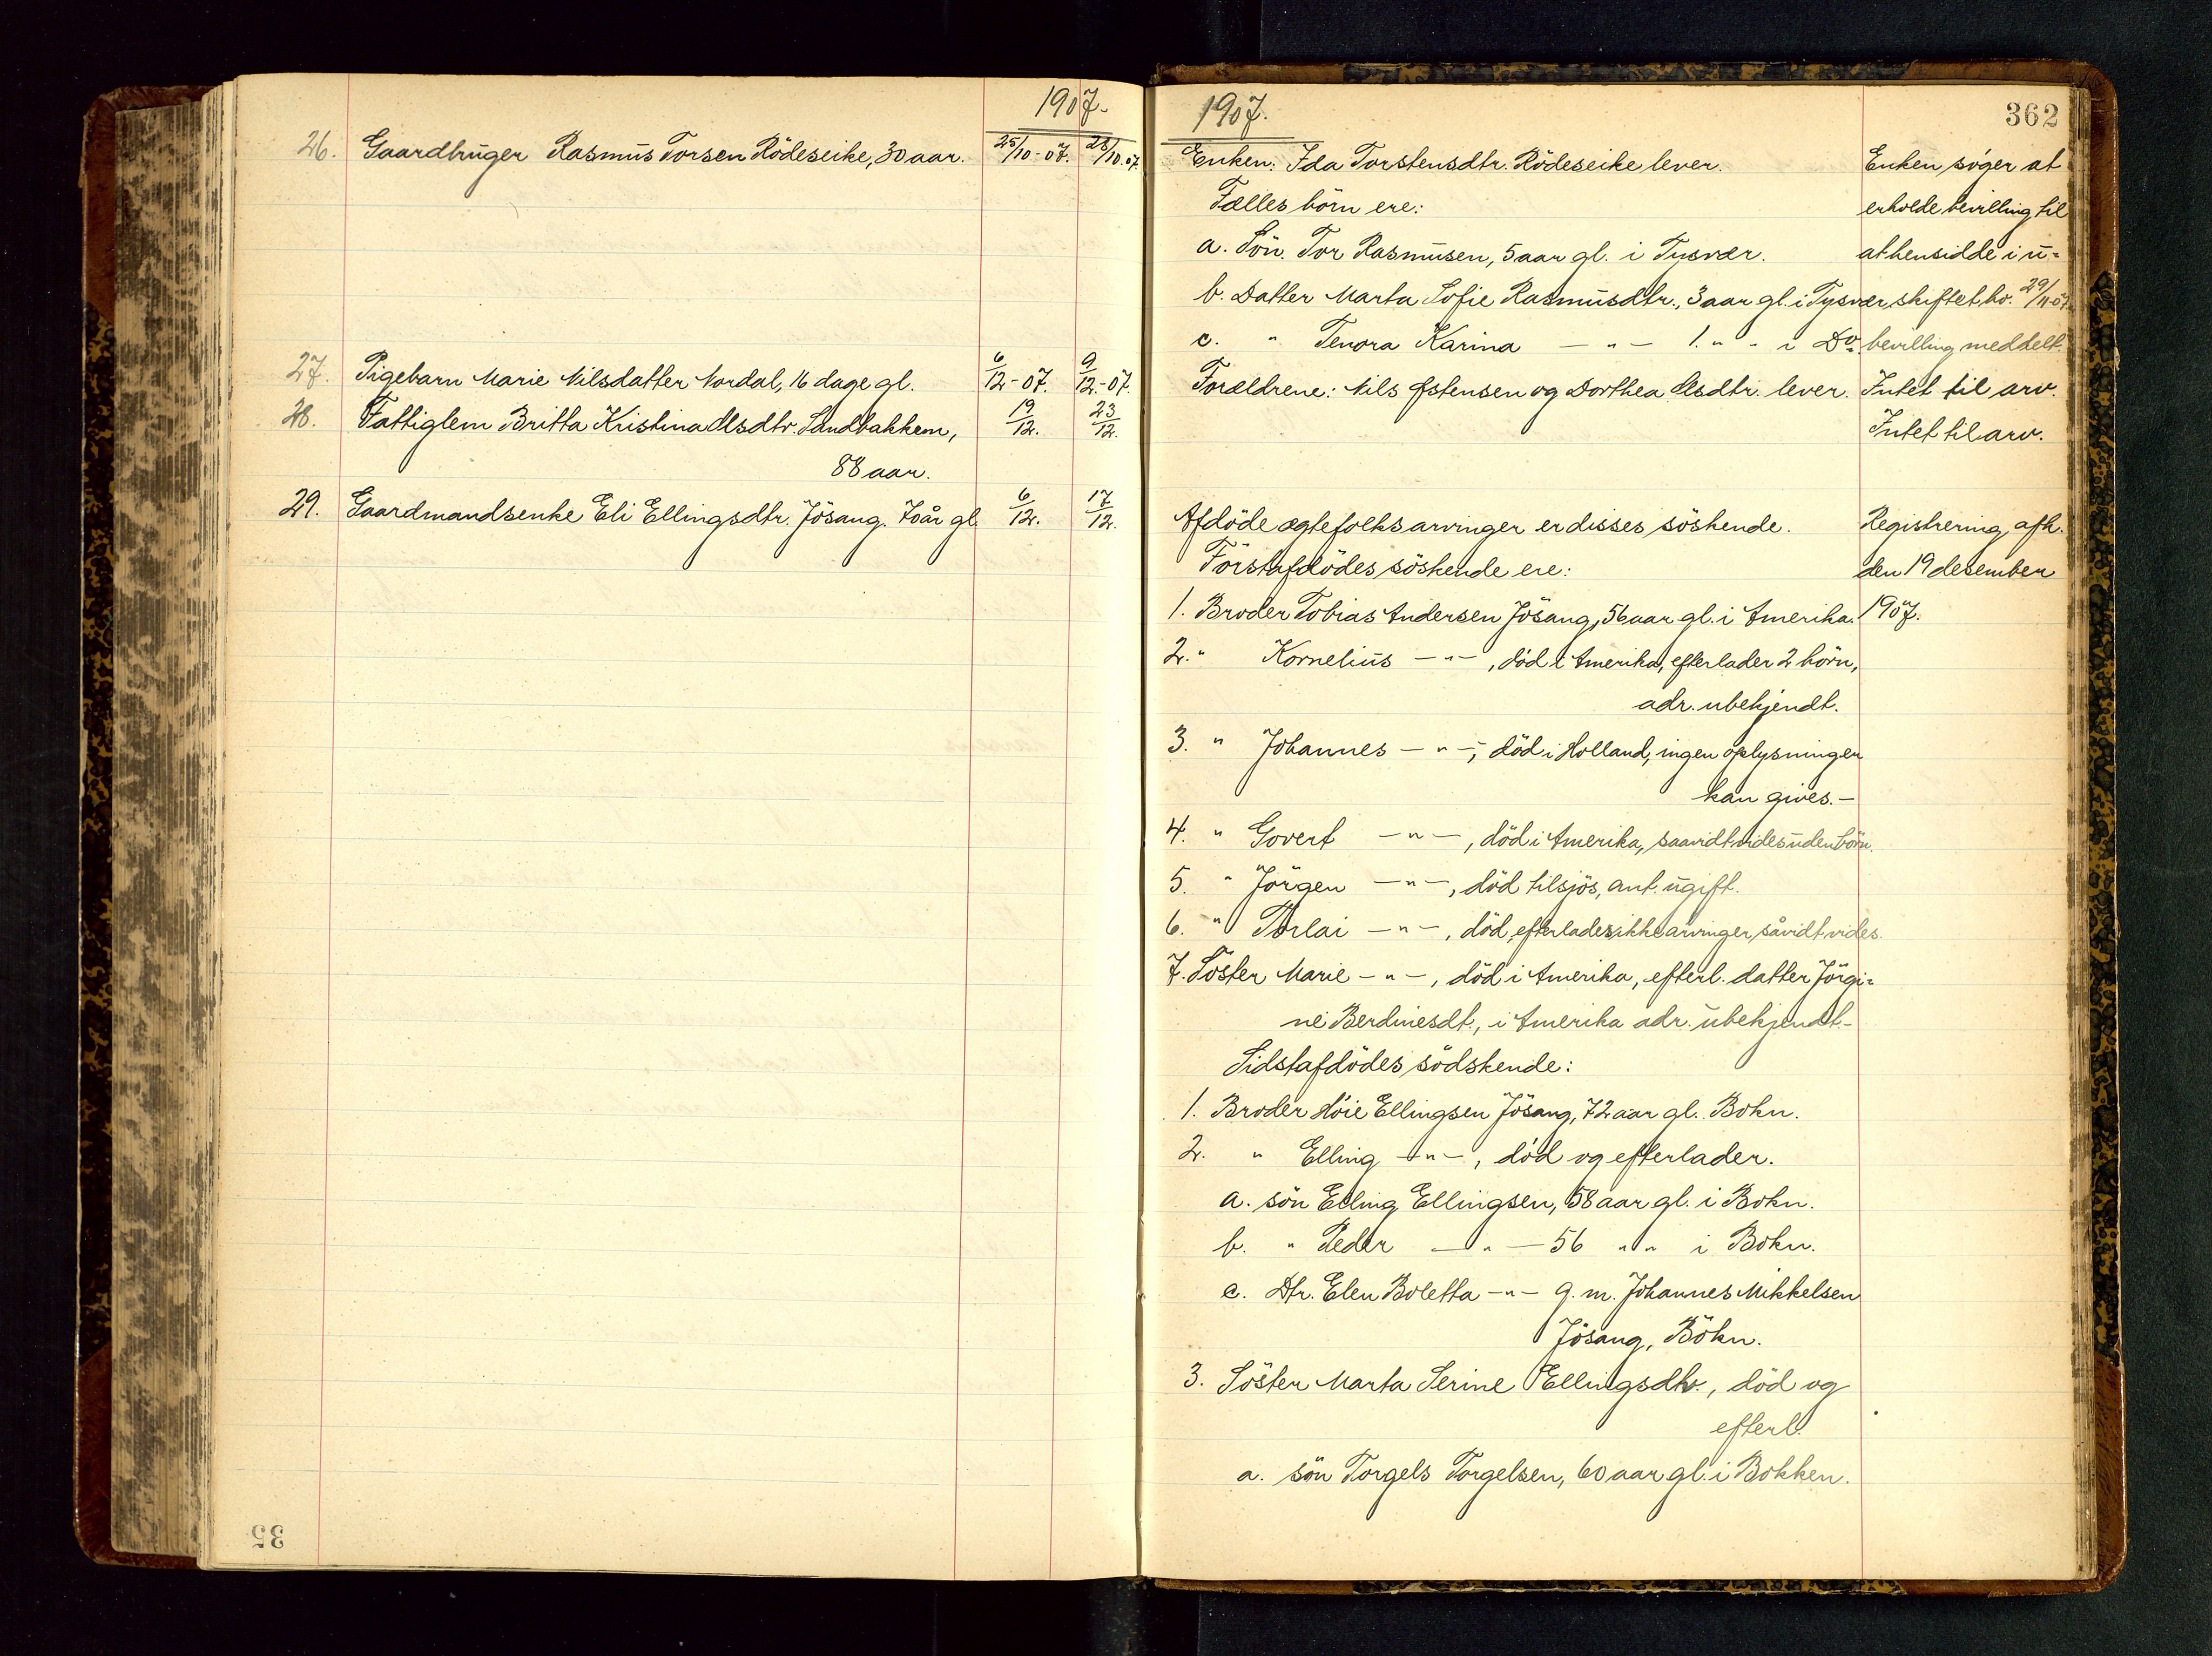 1907.
26. Gaardbruger Rasmus Torsen Rödeseike, 30 aar. 25/10-07. 28/10.07.
27. Pigebarn Marie Nilsdatter Nordal, 16 dage gl. 6/12-07. 9/12-07.
28. Fattiglem Britta Kristina Olsdtr. Sandbakken, 19/12. 23/12.
88 aar.
29. Gaardmandsenke Eli Ellingsdtr. Jösang. 70 år gl. 6/12. 17/12.
35
1907. 362
Enken: Ida Torstensdtr. Rödeseike lever. Enken søger at
Fælles börn ere: erholde bevilling til
a. Sön. Tor Rasmusen, 5 aar gl. i Tysvær. at hensidde i u-
b. Datter Marta Sofie Rasmusdtr., 3 aar gl. i Tysvær, skiftet bo. 29/11-07
c. " Tenora Karina — " — 1. " " i Do. bevilling meddelt.
Forældrene: Nils Østensen og Dorthea Olsdtr. lever. Intet til arv.
Intet til arv.
Afdöde ægtefolks arvinger er disses söskende. Registrering afh.
Förstafdödes söskende ere: den 19 desember
1. Broder Tobias Andersen Jösang, 56 aar gl. i Amerika. 1907.
2. " Kornelius — " —, död i Amerika, efterlader 2 börn,
adr. ubekjendt.
3. " Johannes — " —, död i Holland, ingen oplysninger
kan gives.—
4. " Govert — " —, död i Amerika, saavidt vides uden börn.
5. " Jörgen — " —, död tilsjös, ant. ugift.
6. " Torlai — " —, död, efterlader ikke arvinger såvidt vides.
7. Söster Marie — " —, död i Amerika, efterl. datter Jörgi-
ne Berdinesdt., i Amerika adr. ubekjendt.—
Sidstafdödes södskende:
1. Broder Höie Ellingsen Jösang, 72 aar gl. Bokn.
2. " Elling — " —, död og efterlader.
a. sön Elling Ellingsen, 58 aar gl. i Bokn.
b. " Peder — " — 56 " " i Bokn.
c. Dtr. Elen Boletta — " — g. m. Johannes Mikkelsen
Jösang, Bökn.
3. Söster Marta Serine Ellingsdtr., död og
efterl.
a. sön Torgels Torgelsen, 60 aar gl. i Bokken.